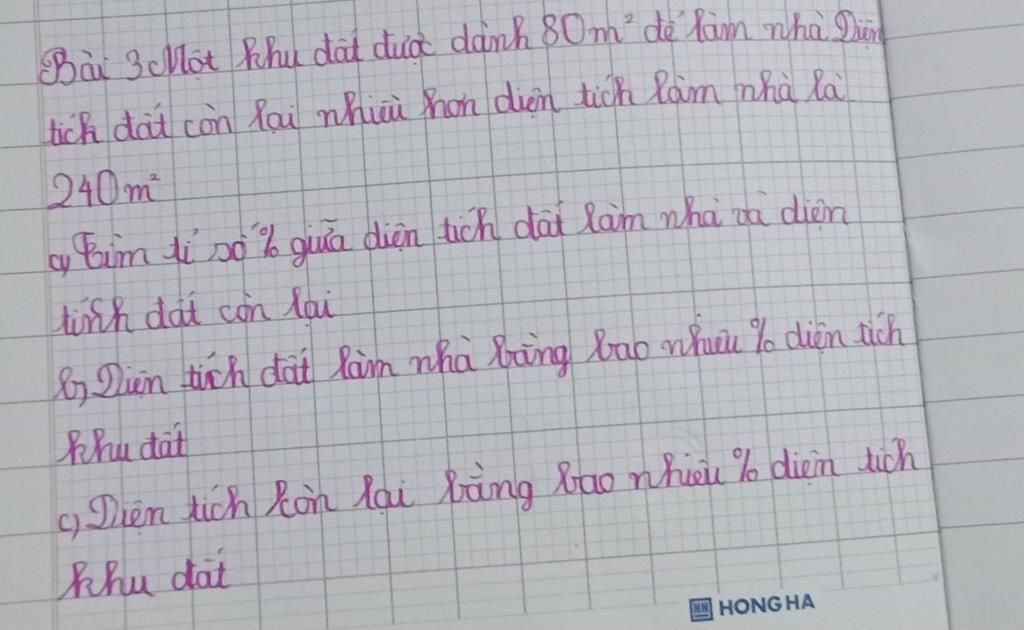 Bài 3 Một khu đất được dành 80m² để làm nhà Diện
tích đất còn lại nhiều hơn diện tích làm nhà là
240m²
a, Tìm tỉ số % giữa diện tích đất làm nhà và diện
tích đất còn lại
b, Diện tích đất làm nhà bằng bao nhiêu % diện tích
khu đất
c, Diện tích còn lại bằng bao nhiêu % diện tích
khu đất
HH HONG HA